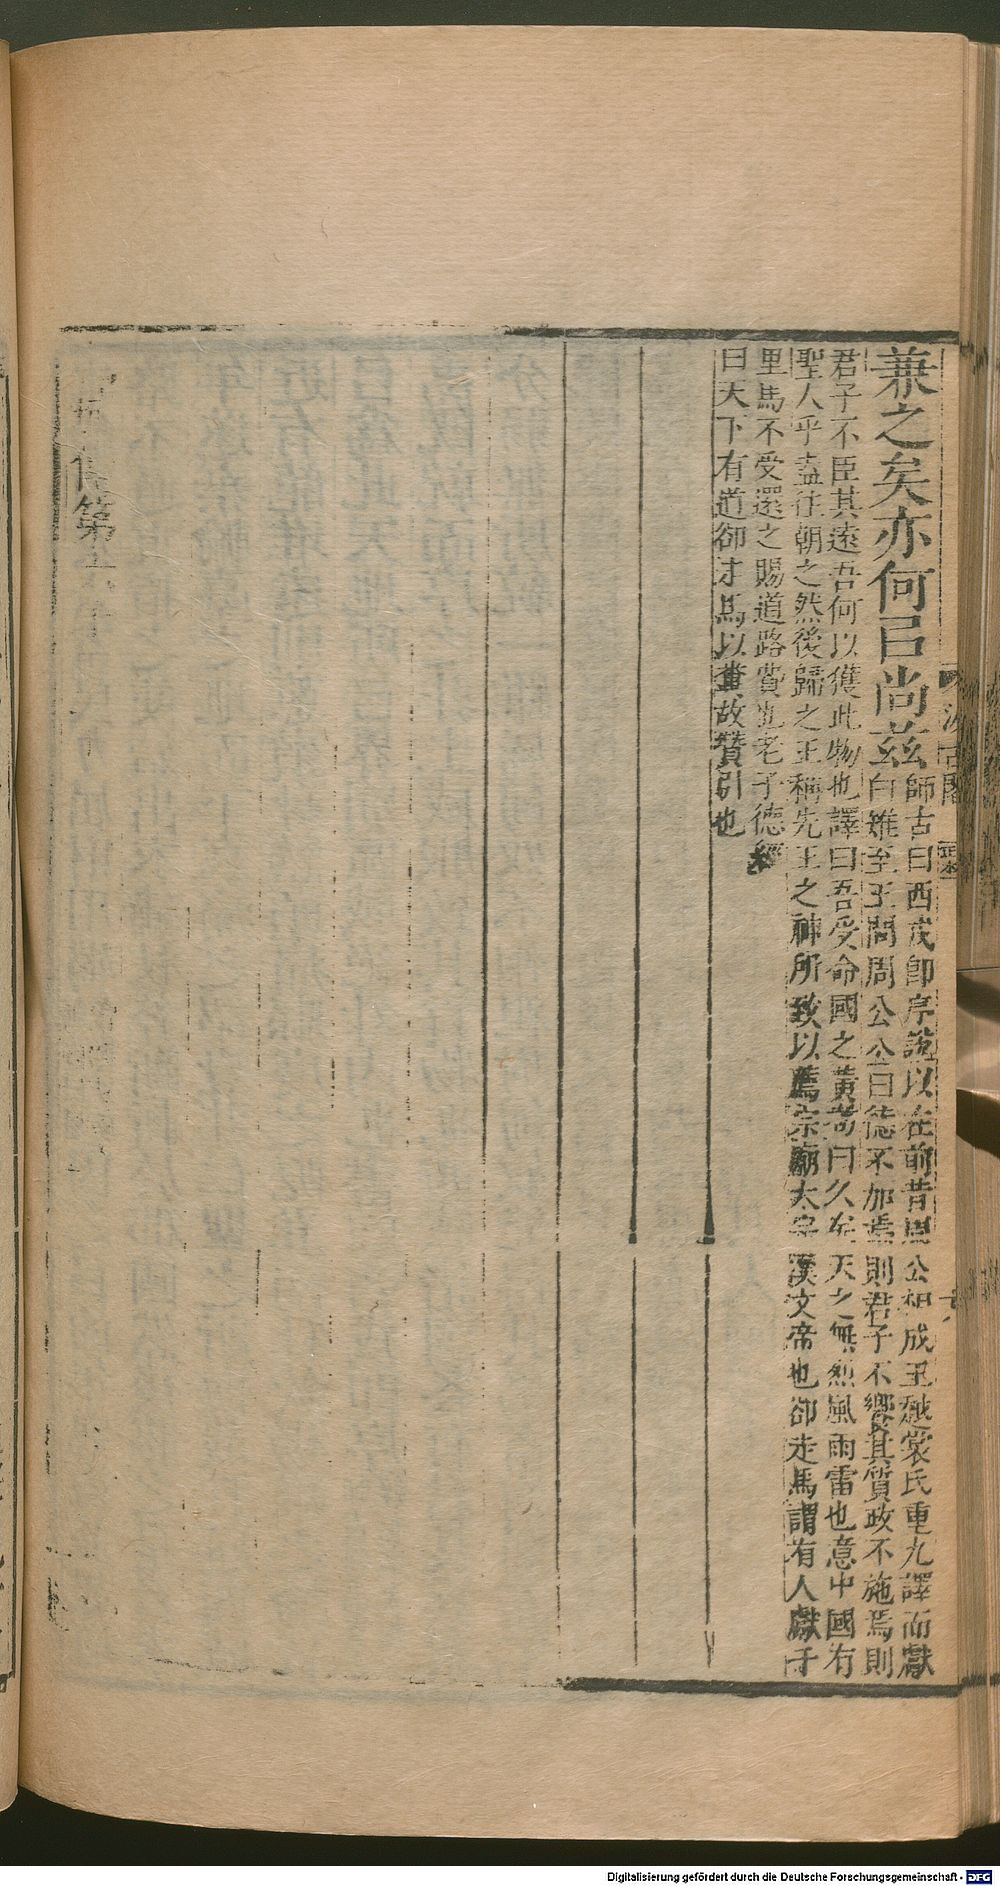 兼之矣亦何㠯尚兹
師古曰西戎卽序說以在前昔周公相成王越裳氏重九譯而獻
白雉至王問周公公曰德不加焉則君子不饗其質政不施焉則
君子不臣其遠吾何以獲此物也譯曰吾受命國之黃耇曰久矣天之無烈風雨雷也意中國有
聖人乎盍往朝之然後歸之王稱先王之神所致以薦宗廟太宗漢文帝也卻走馬謂有人獻千
里馬不受還之賜道路費也老子德經
曰天下有道卻走馬以糞故贊引也
傳第
汲古閣
Digitalisierung gefördert durch die Deutsche Forschungsgemeinschaft - DFG